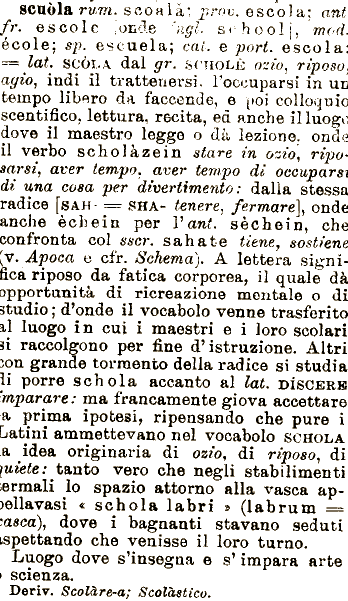 scuòla rum. scoalà; prov. escola; ant.
fr. escole [onde ingl. school], mod.
école; sp. escuela; cat. e port. escola:
= lat. SCÒLA dal gr. SCHOLÈ ozio, riposo,
agio, indi il trattenersi, l'occuparsi in un
tempo libero da faccende, e poi colloquio
scentifico, lettura, recita, ed anche il luogo
dove il maestro legge o dà lezione, onde
il verbo scholàzein stare in ozio, ripo-
sarsi, aver tempo, aver tempo di occuparsi
di una cosa per divertimento: dalla stessa
radice [SAH- = SHA- tenere, fermare], onde
anche èchein per l'ant. sèchein, che
confronta col sscr. sahate tiene, sostiene
(v. Apoca e cfr. Schema). A lettera signi-
fica riposo da fatica corporea, il quale dà
opportunità di ricreazione mentale o di
studio; d'onde il vocabolo venne trasferito
al luogo in cui i maestri e i loro scolari
si raccolgono per fine d'istruzione. Altri
con grande tormento della radice si studia
di porre schola accanto al lat. DISCERE
imparare: ma francamente giova accettare
la prima ipotesi, ripensando che pure i
Latini ammettevano nel vocabolo SCHOLA
la idea originaria di ozio, di riposo, di
quiete: tanto vero che negli stabilimenti
termali lo spazio attorno alla vasca ap-
pellavasi « schola labri » (labrum =
vasca), dove i bagnanti stavano seduti
aspettando che venisse il loro turno.
Luogo dove s'insegna e s'impara arte
o scienza.
Deriv. Scolàre-a; Scolàstico.